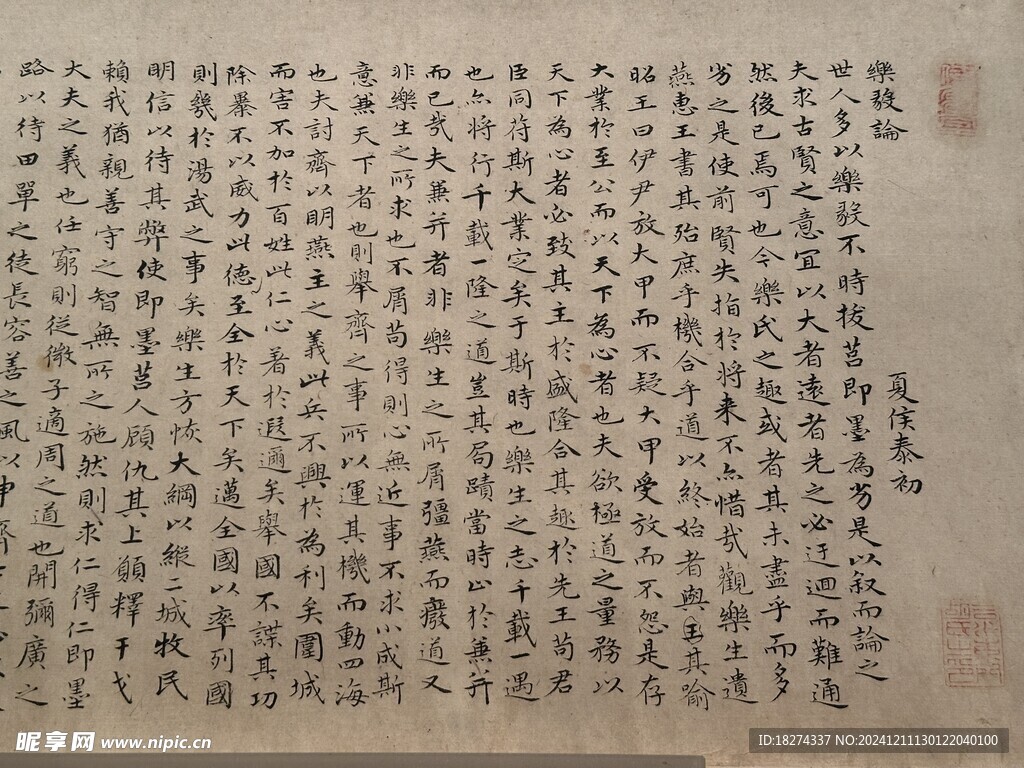 樂毅論
夏侯泰初
世人多以樂毅不時拔莒即墨為劣是以叙而論之
夫求古賢之意宜以大者遠者先之必迂迴而難通
然後已焉可也今樂氏之趣或者其未盡乎而多
劣之是使前賢失指於將来不亦惜哉觀樂生遺
燕惠王書其殆庶乎機合乎道以終始者與其喻
昭王曰伊尹放大甲而不疑大甲受放而不怨是存
大業於至公而以天下為心者也夫欲極道之量務以
天下為心者必致其主於盛隆合其趣於先王苟君
臣同苻斯大業定矣于斯時也樂生之志千載一遇
也亦將行千載一隆之道豈其局蹟當時止於兼并
而已哉夫兼并者非樂生之所屑彊燕而癈道又
非樂生之所求也不屑苟得則心無近事不求小成斯
意兼天下者也則舉齊之事所以運其機而動四海
也夫討齊以明燕主之義此兵不興於為利矣圍城
而害不加於百姓此仁心著於遐邇矣舉國不謀其功
除暴不以威力此德至全於天下矣邁全國以率列國
則幾於湯武之事矣樂生方恢大綱以縱二城牧民
明信以待其弊使即墨莒人顧仇其上願釋干戈
賴我猶親善守之智無所之施然則求仁得仁即墨
大夫之義也任窮則從微子適周之道也開彌廣之
路以待田單之徒長容善之風以申齊
昵享网 www.nipic.cn
ID:18274337 NO:20241211130122040100